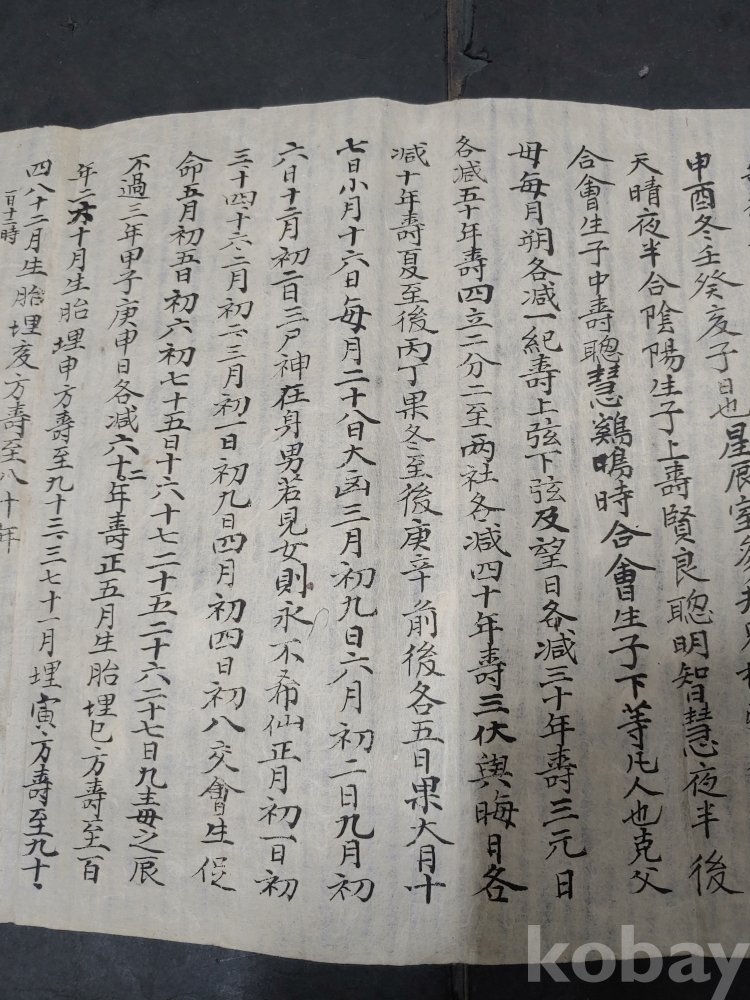 申酉冬壬癸亥子日也星辰室
天晴夜半合陰陽生子上壽賢良聰明智慧夜半後
合會生子中壽聰慧鷄鳴時合會生子下等凡人也克父
母每月朔各减一紀壽上弦下弦及望日各减三十年壽三元日
各减五十年壽四立二分二至两社各减四十年壽三伏與晦日各
减十年壽夏至後丙丁果冬至後庚辛前後各五日果大月十
七日小月十六日每月二十八日大凶三月初九日六月初二日九月初
六日十二月初二日三尸神在身男若見女則永不希仙正月初一日初
三十四十六二月初二三月初一日初九日四月初四日初八交會生促
命五月初五日初六初七十五日十六十七二十五二十六二十七日九毒之辰
不過三年甲子庚申日各减六十二年壽正五月生胎埋巳方壽至百
年二六十月生胎埋申方壽至九十三三七十一月埋寅方壽至九十
四八十二月生胎埋亥方壽至八十年
百十二時
kobay